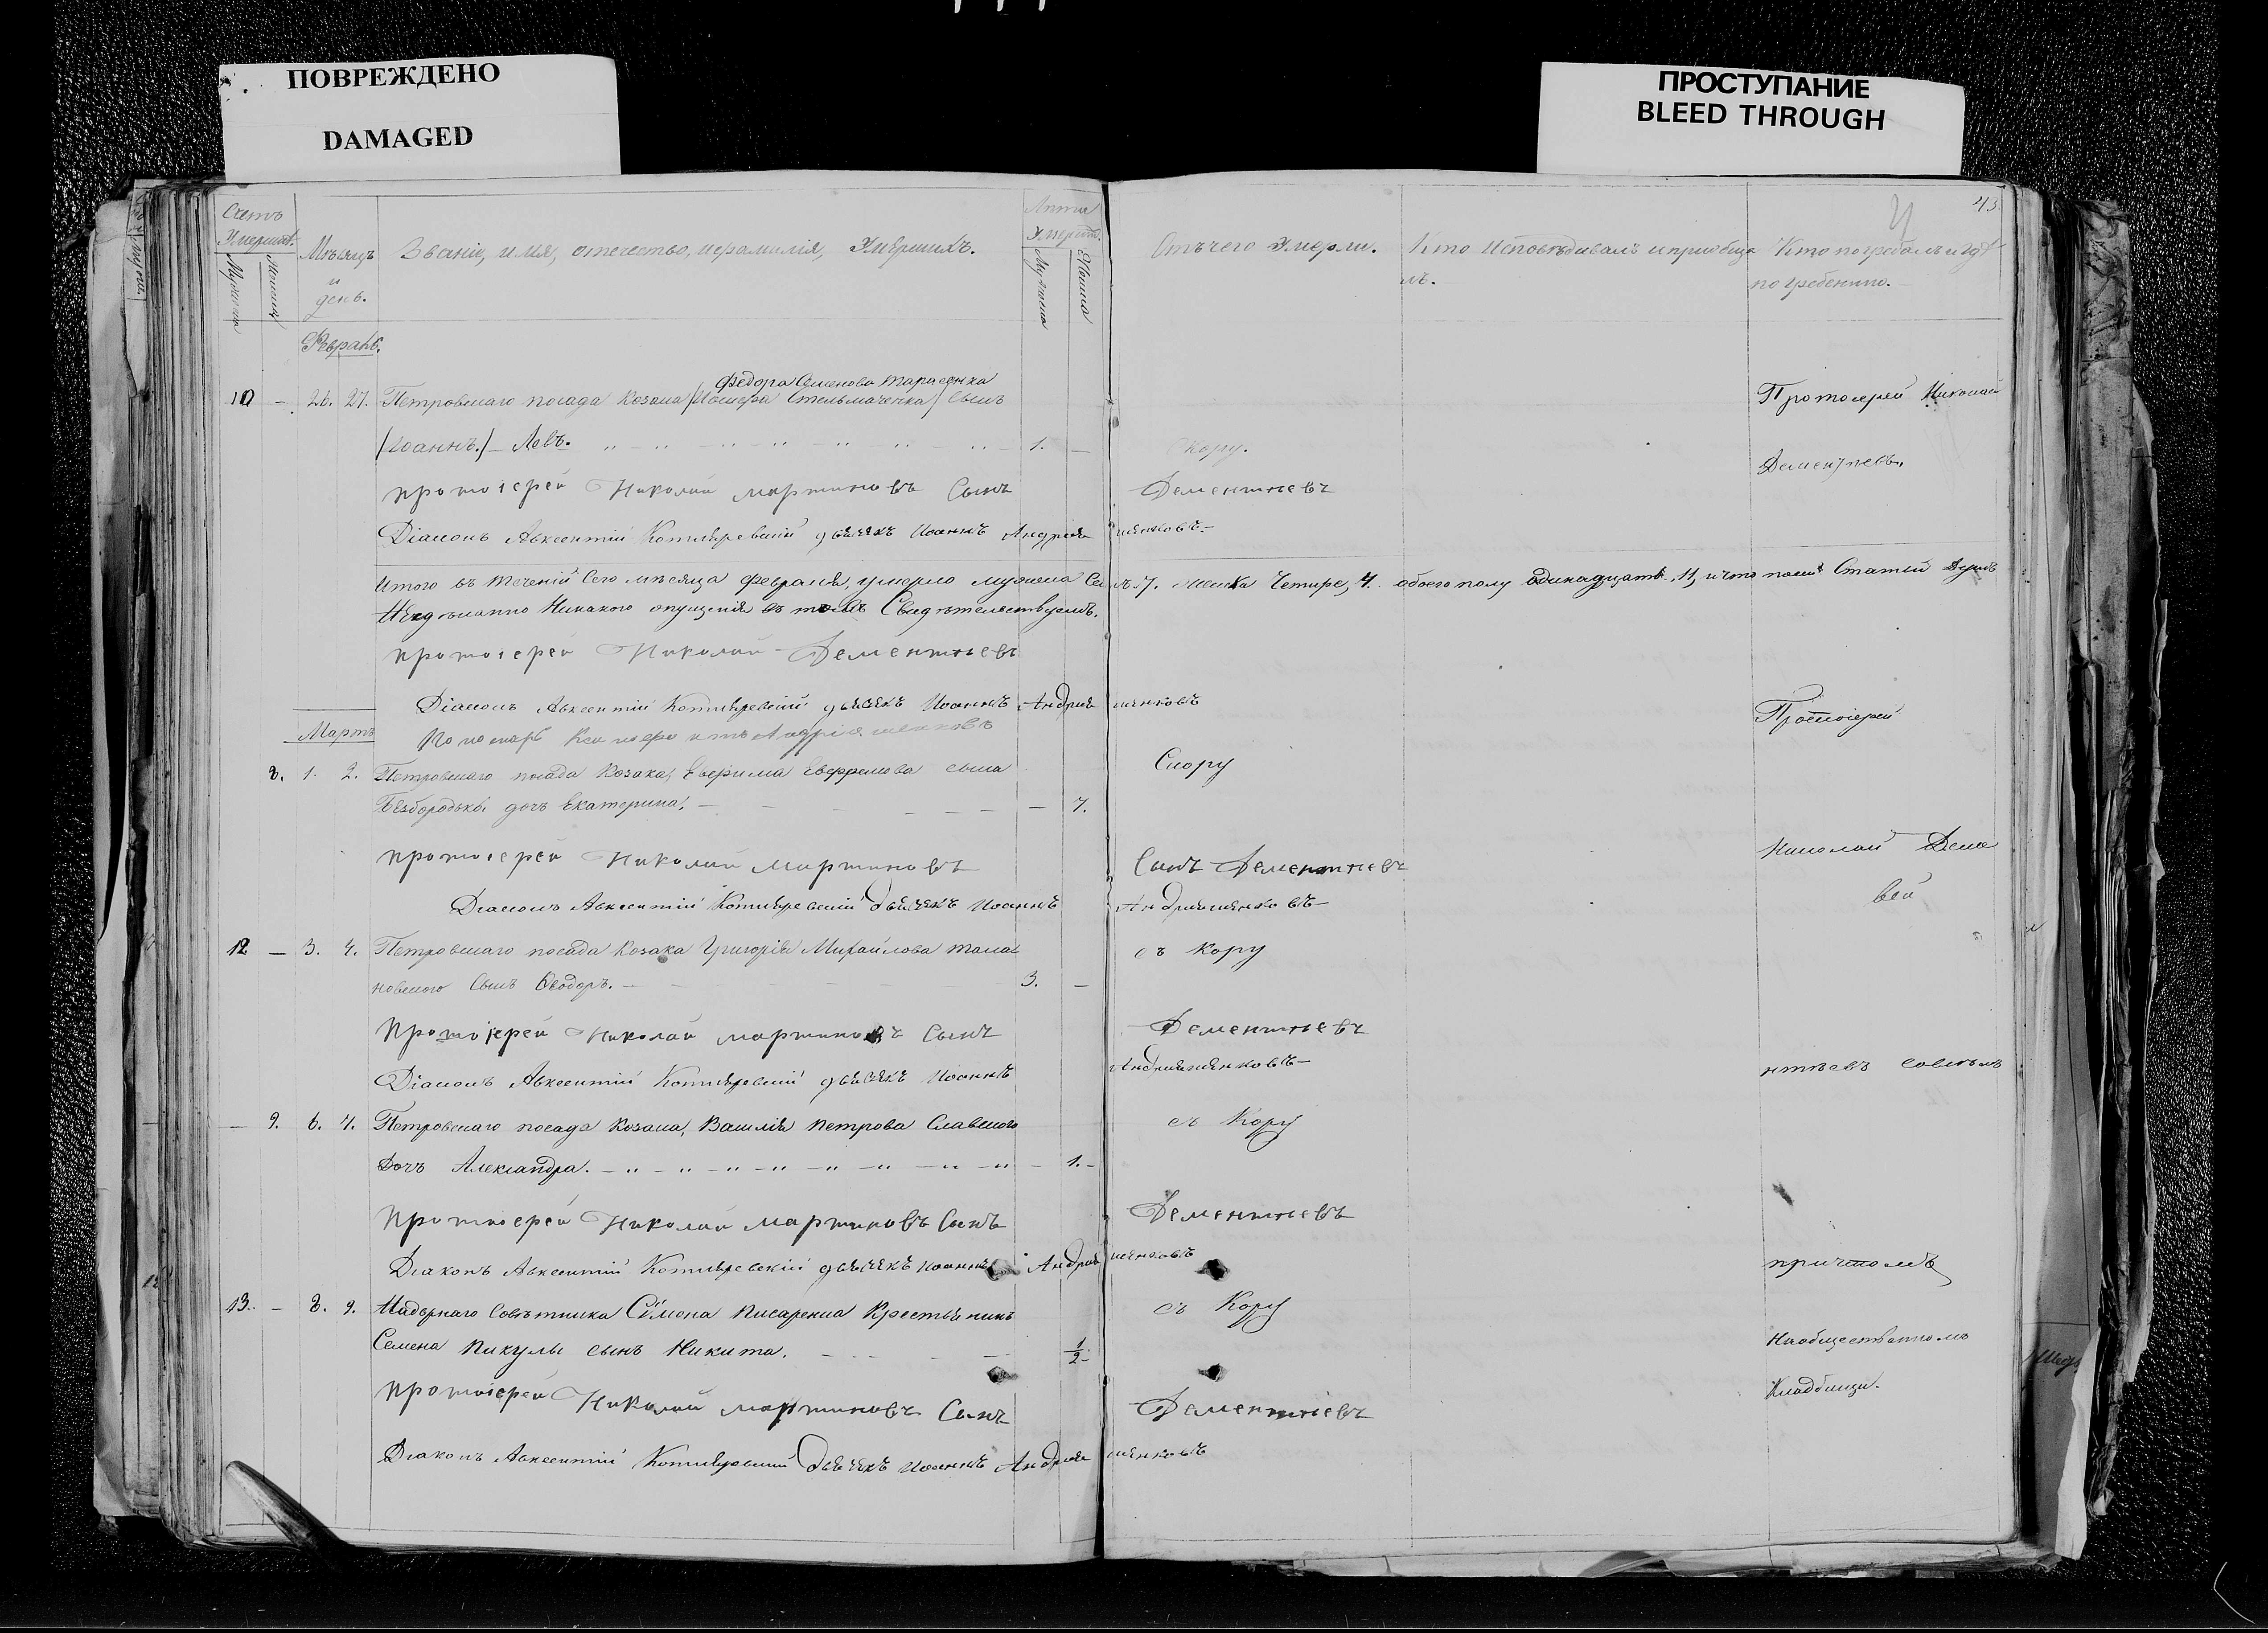 ПОВРЕЖДЕНО
DAMAGED
ПРОСТУПАНИЕ
BLEED THROUGH
43.
Счетъ
Умерших.
Мѣсяцъ
и
день.
Званіе, имя, отечество, ифамилія, Умершихъ.
Лѣта
Отъчего Умерли.
Кто Исповѣдивалъ иприобща
лъ.
Кто погребалъ и гдѣ
погребенины.
Февраль.
Федора Семенова Тарасенка
10 - 26. 27. Петровскаго посада Козака /Иосифа Стельмаченка/ сынъ
/Иоаннъ./ - Левъ. 1. -
Скору.
Протоіерей Николай
Дементьевъ.
протоіерей Николай мартиновъ Сынъ Дементьевъ
Діаконъ Авксентій Котляревский дьячекъ Иоаннъ Андріяшенковъ
Итого въ теченій Сего мѣсяца февраля, умерло мужеска семъ 7. женска Четире, 4. обоего полу одинадцать 11, и что Статьи
Никакого опущенія въ томъ Свидѣтельствуемъ.
протоіерей Николай Дементьевъ
Діаконъ Авксентій Котляревский дьячекъ Иоаннъ Андріяшенковъ
Мартъ
Пономаръ Андріяшенковъ
8. 1. 2. Петровскаго посада Козака, Евфима Евфремова сына
Безбородька дочъ Екатерина. - 7.
Скору
Протоіерей
протоіерей Николай мартиновъ Сынъ Дементьевъ
Николай Деме
Діаконъ Авксентій Котляревский дьячекъ Иоаннъ Андріяшенковъ
12 - 3. 4. Петровскаго посада Козака Григорія Михайлова Тома
новского Сынъ Феодоръ. 3. -
съ Кору
протоіерей Николай мартиновъ Сынъ Дементьевъ
Діаконъ Авксентій Котляревский дьячекъ Иоаннъ Андріяшенковъ
нтьевъ
- 9. 6. 7. Петровскаго посада Козака, Василія Петрова Славского
Дочъ Александра. - 1. -
съ Кору
протоіерей Николай мартиновъ Сынъ Дементьевъ
Діаконъ Авксентій Котляревский дьячекъ Иоаннъ Андріяшенковъ
причтомъ
13. - 8. 9. Надворнаго Совѣтника Сѵмона Писаренка Крестьянинъ
Семена Пикулы сынъ Никита. 1/2
съ Кору
Наобщественномъ
Кладбищи.
протоіерей Николай мартиновъ Сынъ Дементьевъ
Діаконъ Авксентій Котляревский дьячекъ Иоаннъ Андріяшенковъ